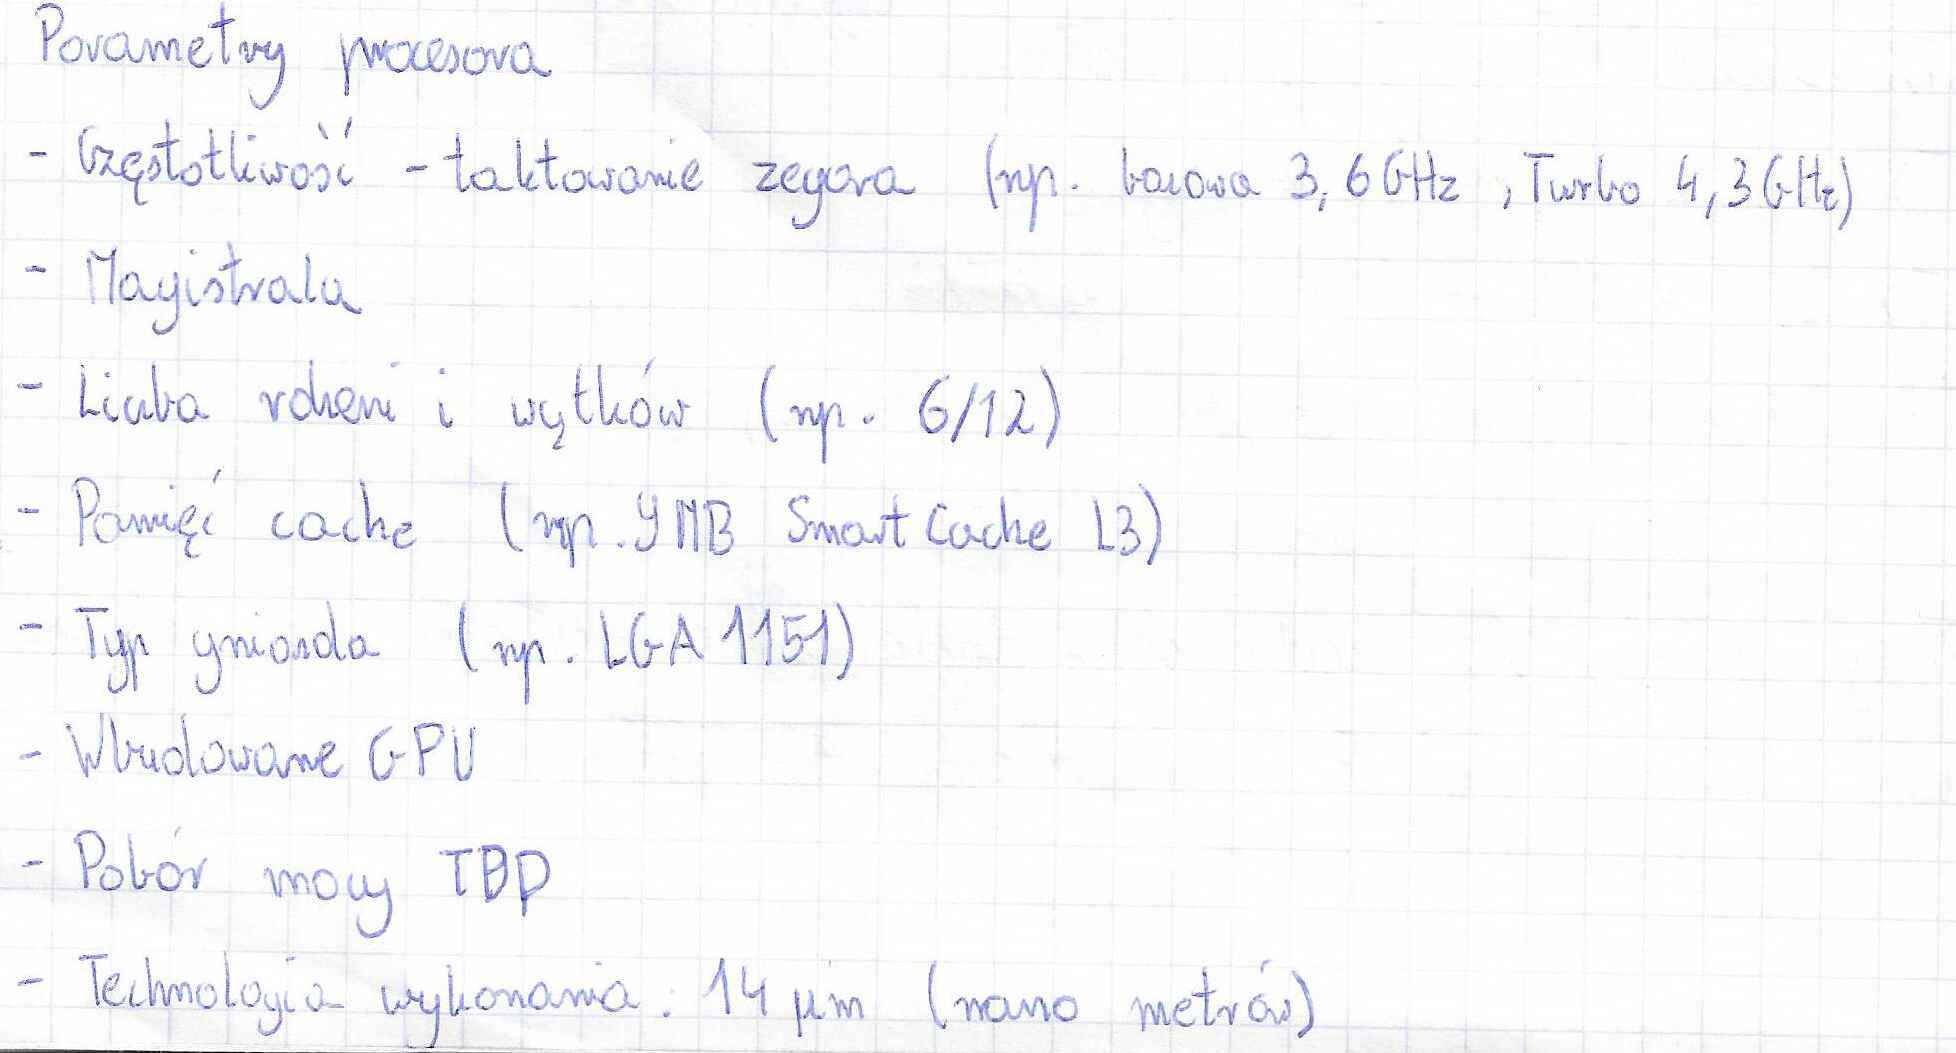 Parametry procesora
- Częstotliwość - taktowanie zegara (np. bazowa 3,6 GHz, Turbo 4,3 GHz)
- Magistrala
- Liczba rdzeni i wątków (np. 6/12)
- Pamięć cache (np. 9MB Smart Cache L3)
- Typ gniazda (np. LGA 1151)
- Wbudowane GPU
- Pobór mocy TBP
- Technologia wykonania: 14 µm (nano metrów)